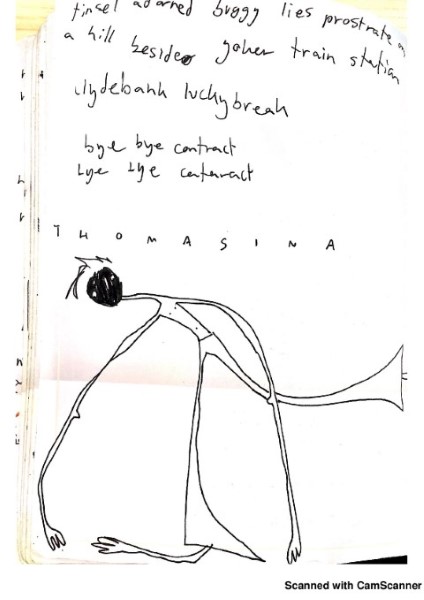 tinsel adorned buggy lies prostrate on
a hill beside goher train station
clydebank luckybreak
bye bye contract
lye lye cataract
THOMASINA
Scanned with CamScanner